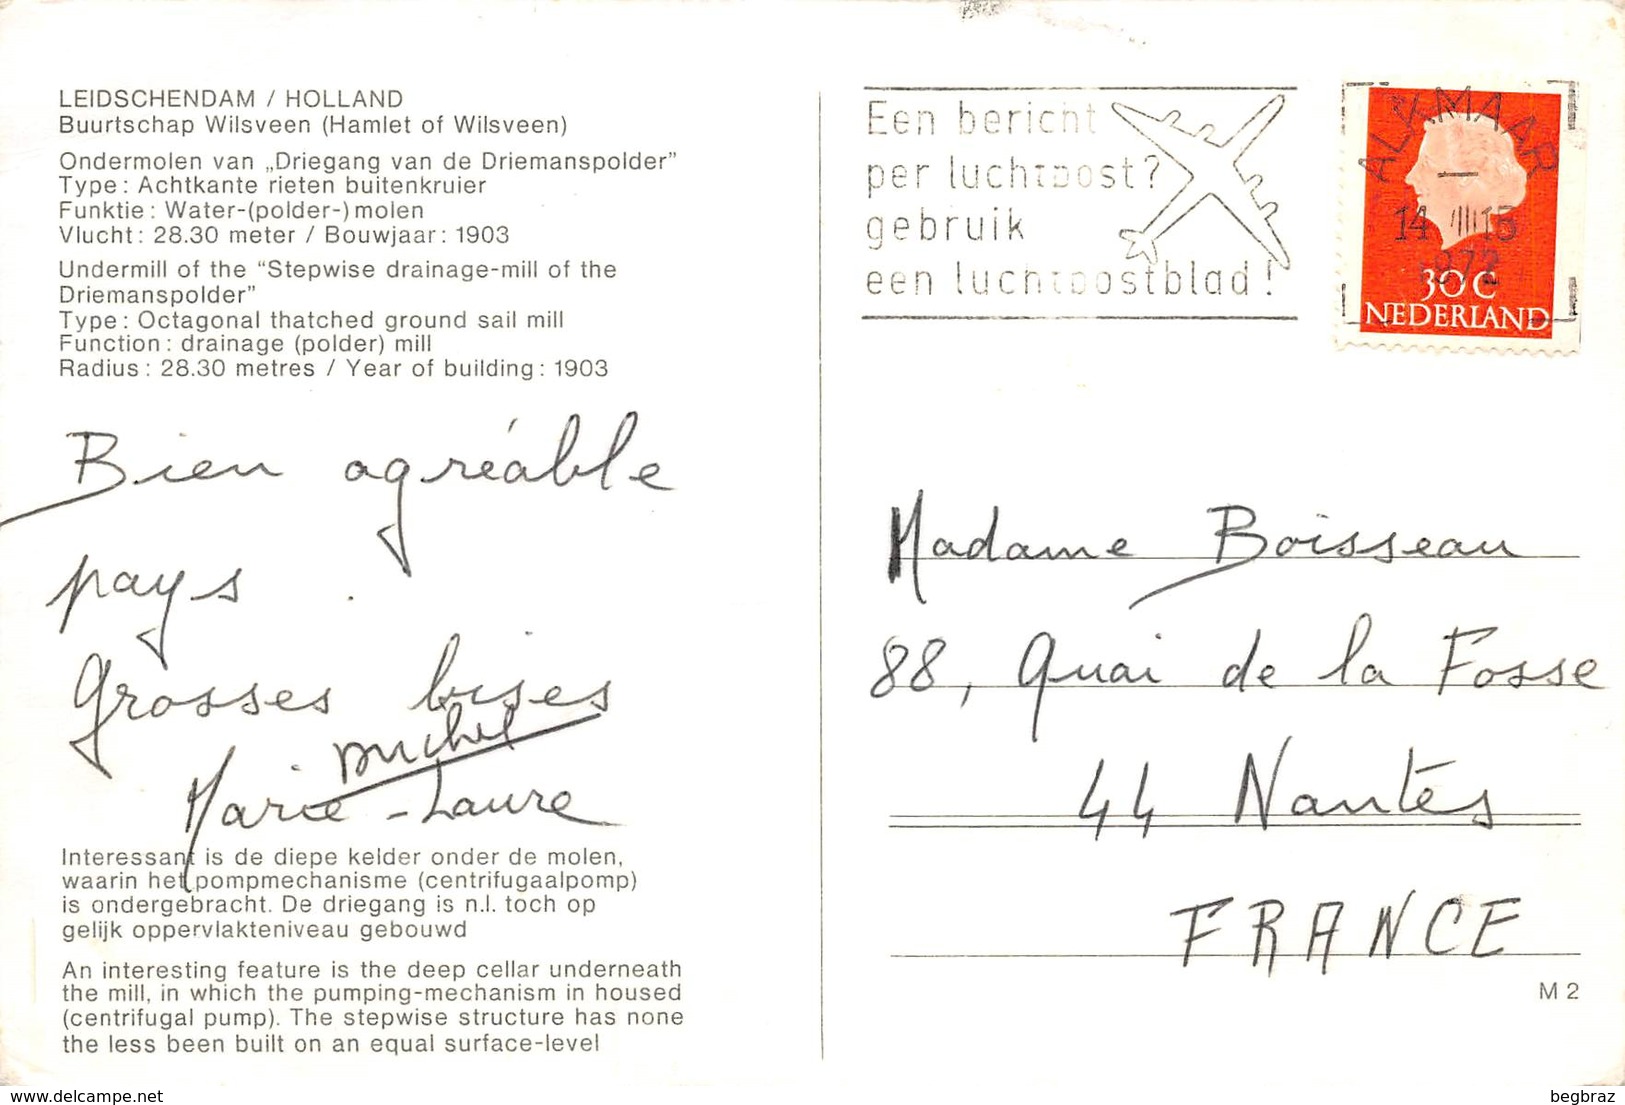 LEIDSCHENDAM / HOLLAND
Buurtschap Wilsveen (Hamlet of Wilsveen)
Ondermolen van „Driegang van de Driemanspolder”
Type: Achtkante rieten buitenkruier
Funktie: Water-(polder-) molen
Vlucht: 28.30 meter / Bouwjaar: 1903
Undermill of the “Stepwise drainage-mill of the
Driemanspolder”
Type: Octagonal thatched ground sail mill
Function: drainage (polder) mill
Radius: 28.30 metres / Year of building: 1903
Bien agréable
pays.
Grosses bises
Michel
Marie-Laure
Interessant is de diepe kelder onder de molen,
waarin het pompmechanisme (centrifugaalpomp)
is ondergebracht. De driegang is n.l. toch op
gelijk oppervlakteniveau gebouwd
An interesting feature is the deep cellar underneath
the mill, in which the pumping-mechanism in housed
(centrifugal pump). The stepwise structure has none
the less been built on an equal surface-level
Een bericht
per luchtpost?
gebruik
een luchtpostblad!
ALKMAAR
14 VIII 15
1972
30c
NEDERLAND
Madame Boisseau
88, Quai de la Fosse
44 Nantes
FRANCE
M 2
Delcampe.net
begbraz